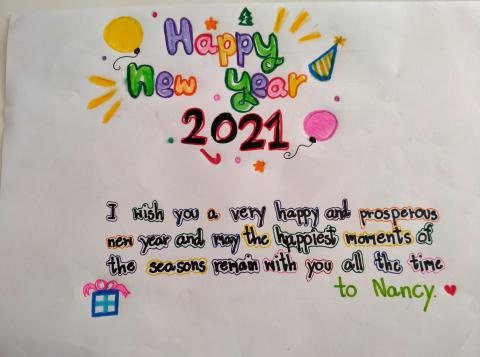 Happy
new year
2021
I wish you a very happy and prosperous
new year and may the happiest moments of
the seasons remain with you all the time
to Nancy.